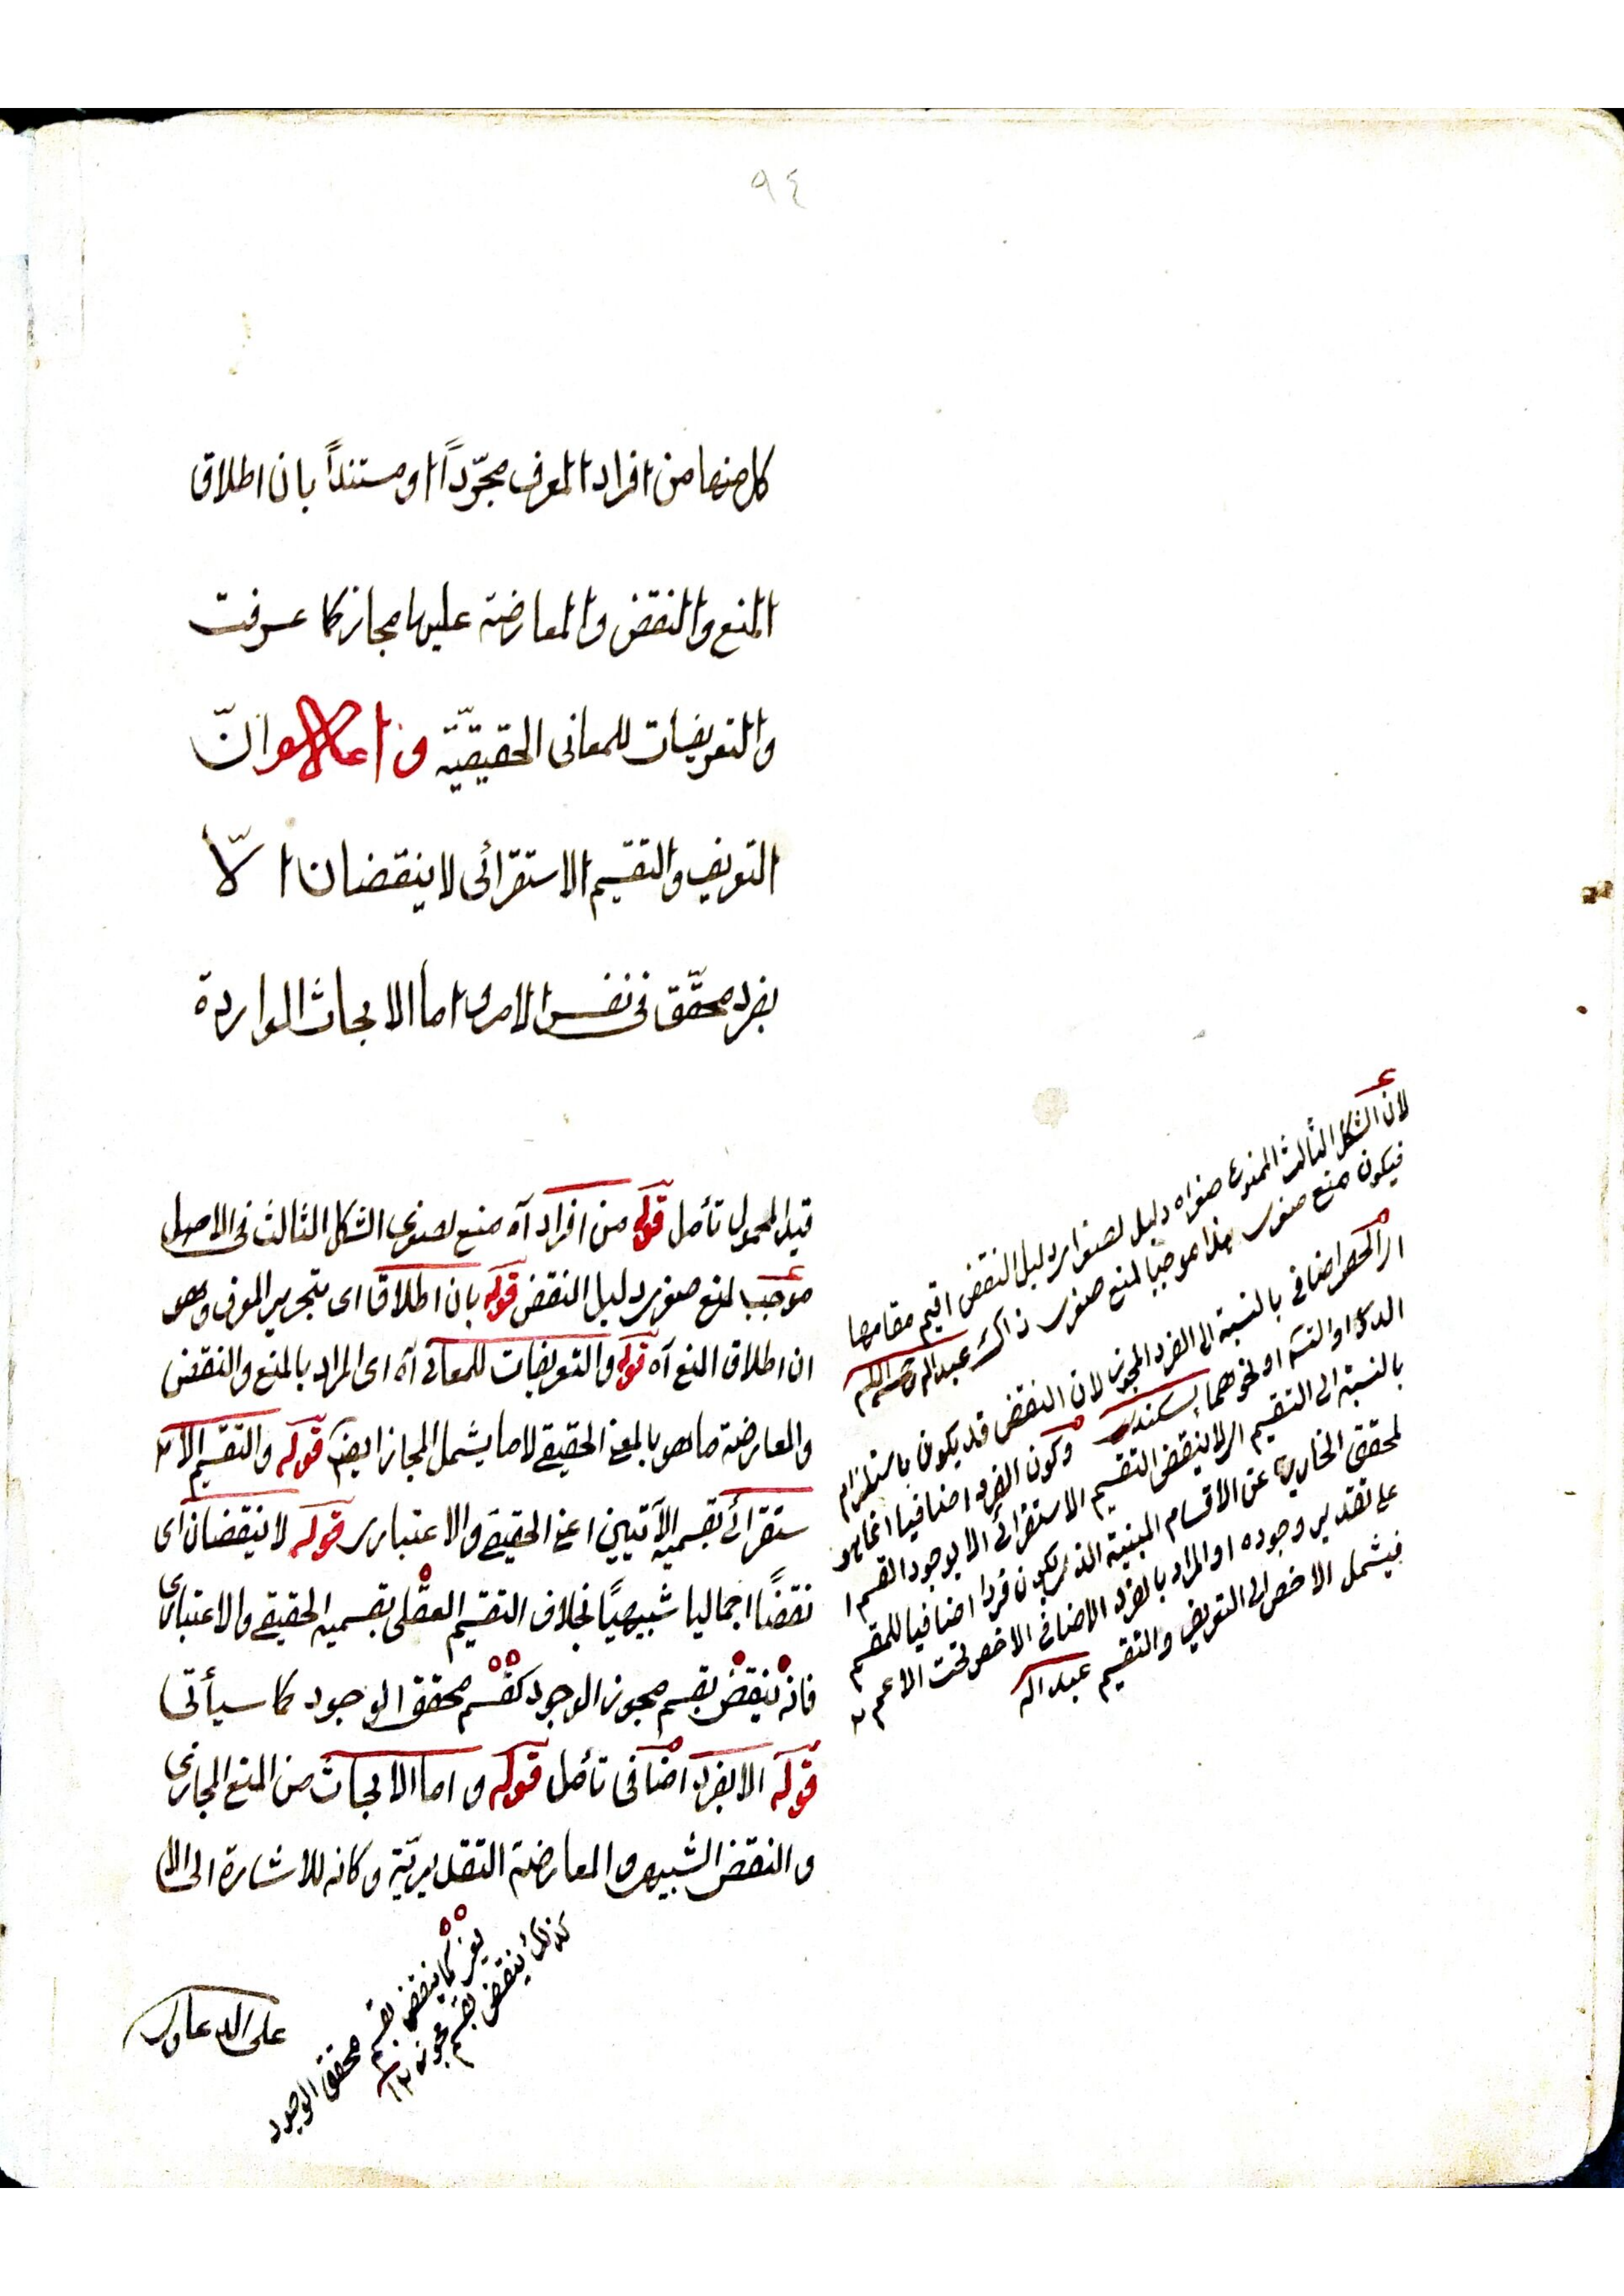 ٩٤
كل منها من افراد المعرف مجرّداً او مستنداً بان اطلاق
المنع والنقض والمعارضة عليها مجاز كما عرفت
والتعريفات للمعانى الحقيقيّة واعلاموا انّ
التعريف والتقسيم الاستقرائى لا ينقضان الّا
بفرد محقّق فى نفس الامر واما الابحاث الواردة
قيد المحمول تأمل قوله من افراد آه منع لصغرى الشكل الثالث فى الاصل
موجب لمنع صغرى دليل النقض قوله بان اطلاق اى بتحرير المعرف وهو
ان اطلاق المنع آه قوله والتعريفات للمعانى آه اى المراد بالمنع والنقض
والمعارضة ما هو بالمعنى الحقيقى لا ما يشمل المجاز ايضا قوله والتقسيم الا
ستقرائى بقسميه الآتيين اعنى الحقيقى والاعتبارى قوله لا ينقضان اى
نقضًا اجماليا شبيهيًا بخلاف التقسيم العقلى بقسميه الحقيقى والاعتبارى
فانه ينقض بقسم مجوز الوجود كقسم محقق الوجود كما سيأتى
قوله الا بفرد اضافى تأمل قوله واما الابحاث من المنع المجازى
والنقض الشبيهى والمعارضة التقديريّة وكانه للاشارة الى ان
لان الشكل الثالث الممنوع صغراه دليل لصغرى دليل النقض اقيم مقامها
فيكون منع صغرى هذا موجبا لمنع صغرى ذاك عبد الرحمن
اى الحصر اضافى بالنسبة الى الفرد المجوز لان النقض قد يكون باستلزام
الدور او التسلسل او نحوهما وكون الفرد اضافيا انما هو
بالنسبة الى التقسيم اى لا ينقض التقسيم الاستقرائى الا بوجود القسم ا
لمحقق الخارج عن الاقسام المبينة الذى يكون فردا اضافيا للمقسم
على تقدير وجوده او المراد بالفرد الاضافى الاخص تحت الاعم
فيشمل الاخص الى التعريف والتقسيم عبد الله
يعنى كما ينقض بقسم محقق الوجود
كذلك ينقض بقسم مجوز
على الدعاوى